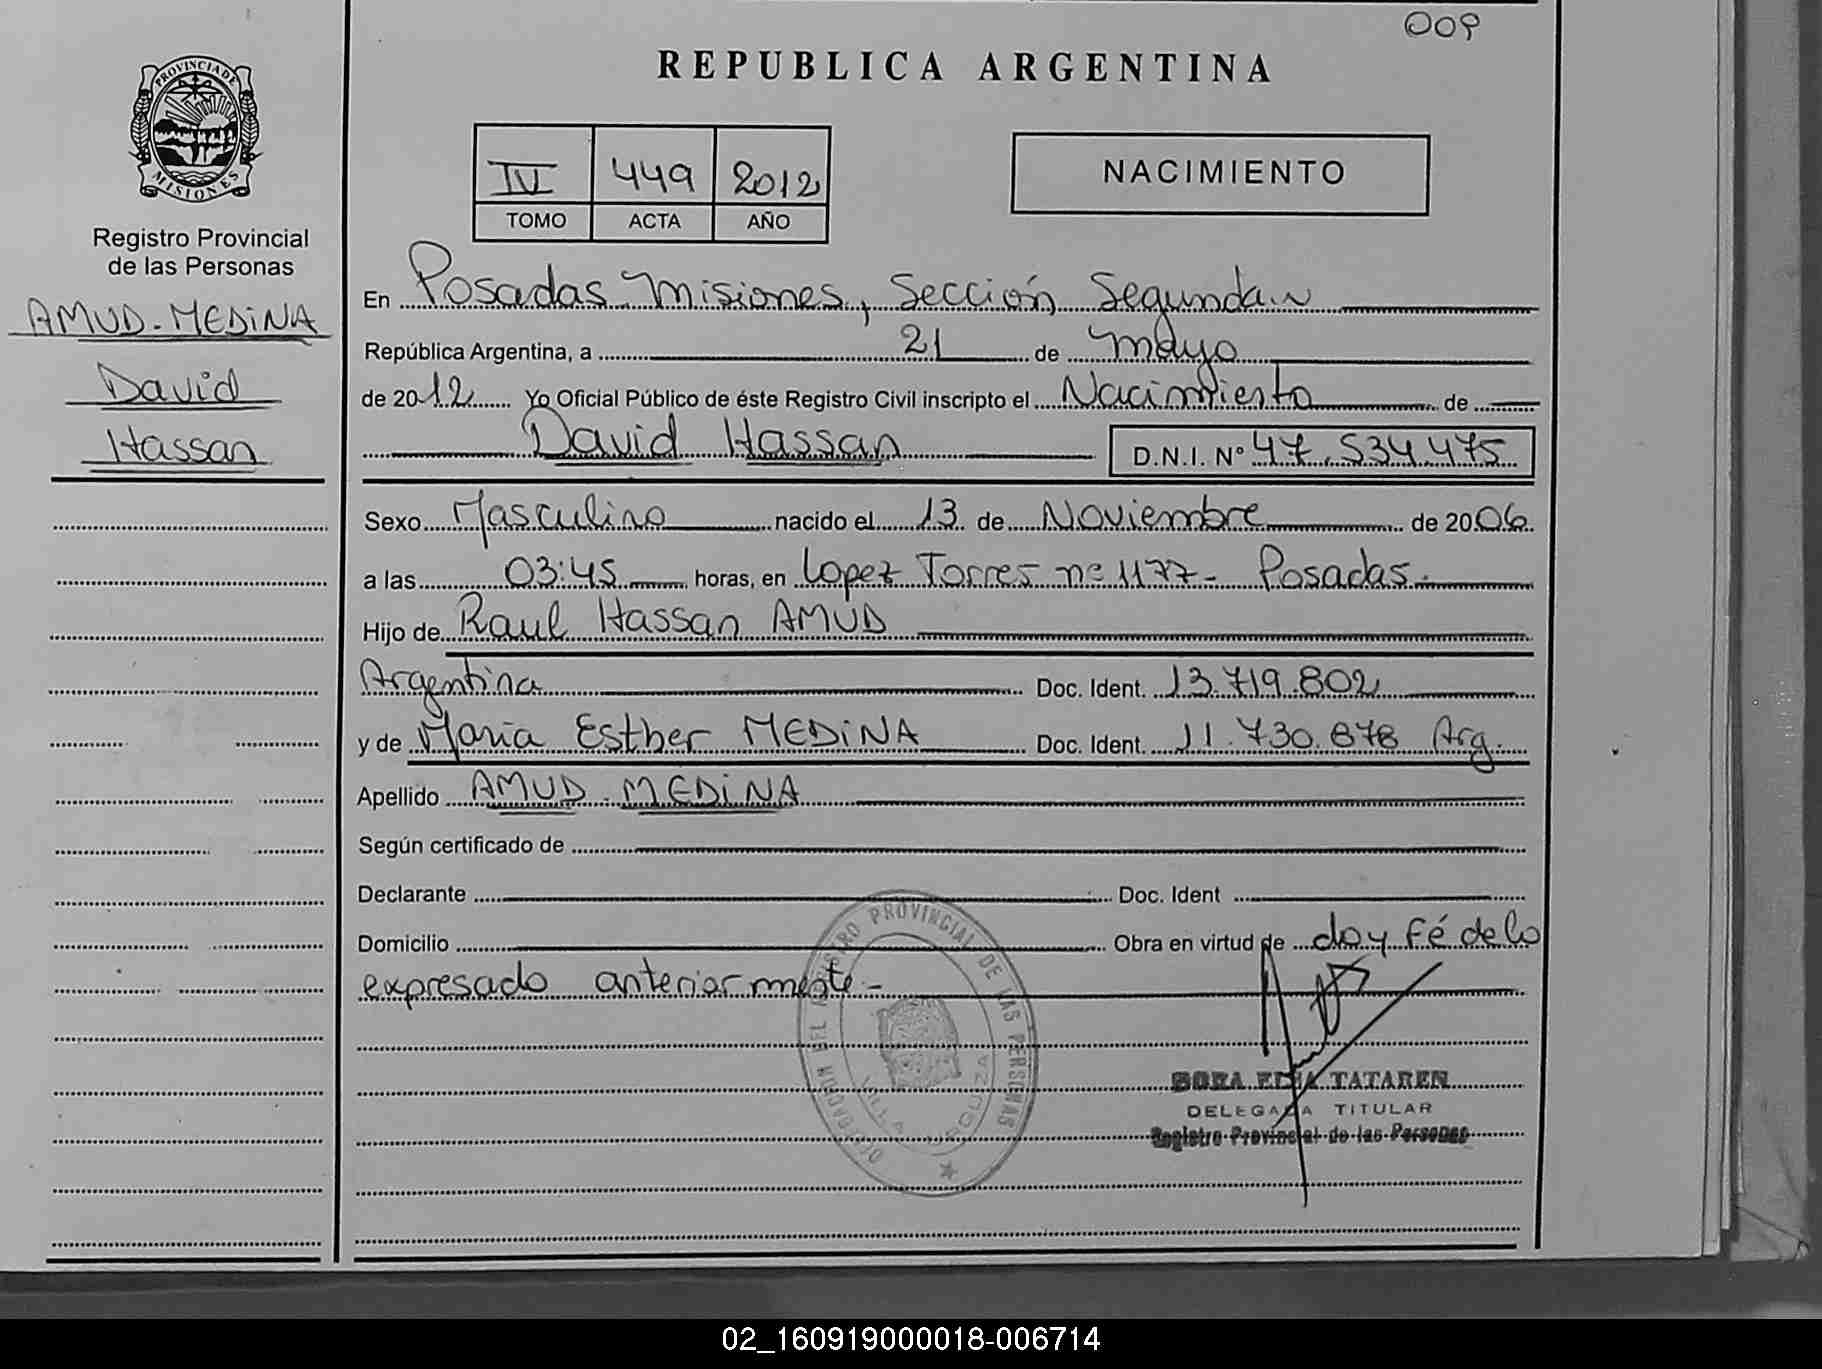 009
REPUBLICA ARGENTINA
PROVINCIA DE
MISIONES
IV 449 2012
TOMO ACTA AÑO
NACIMIENTO
Registro Provincial
de las Personas
AMUD-MEDINA
David
Hassan
En Posadas Misiones, Sección Segunda
República Argentina, a 21 de Mayo
de 2012 Yo Oficial Público de éste Registro Civil inscripto el Nacimiento de
David Hassan D.N.I. Nº 47.534.475
Sexo Masculino nacido el 13 de Noviembre de 2006
a las 03:45 horas, en Lopez Torres nº 1177- Posadas-
Hijo de Raul Hassan AMUD
Argentina Doc. Ident. 13.719.802
y de Maria Esther MEDINA Doc. Ident. 11.730.878 Arg.
Apellido AMUD-MEDINA
Según certificado de
Declarante Doc. Ident
Domicilio Obra en virtud de doy Fé de lo
expresado anteriormente-
DELEGACION DEL REGISTRO PROVINCIAL DE LAS PERSONAS
VILLA URQUIZA
TATAREN
DELEGADA TITULAR
Registro Provincial de las Personas
02_160919000018-006714